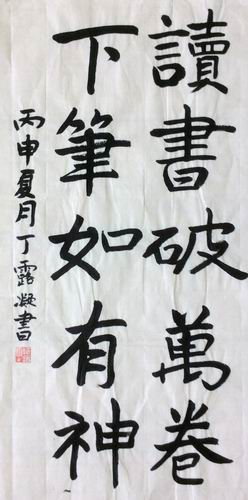 讀書破萬卷
下筆如有神
丙申夏月丁露凝書